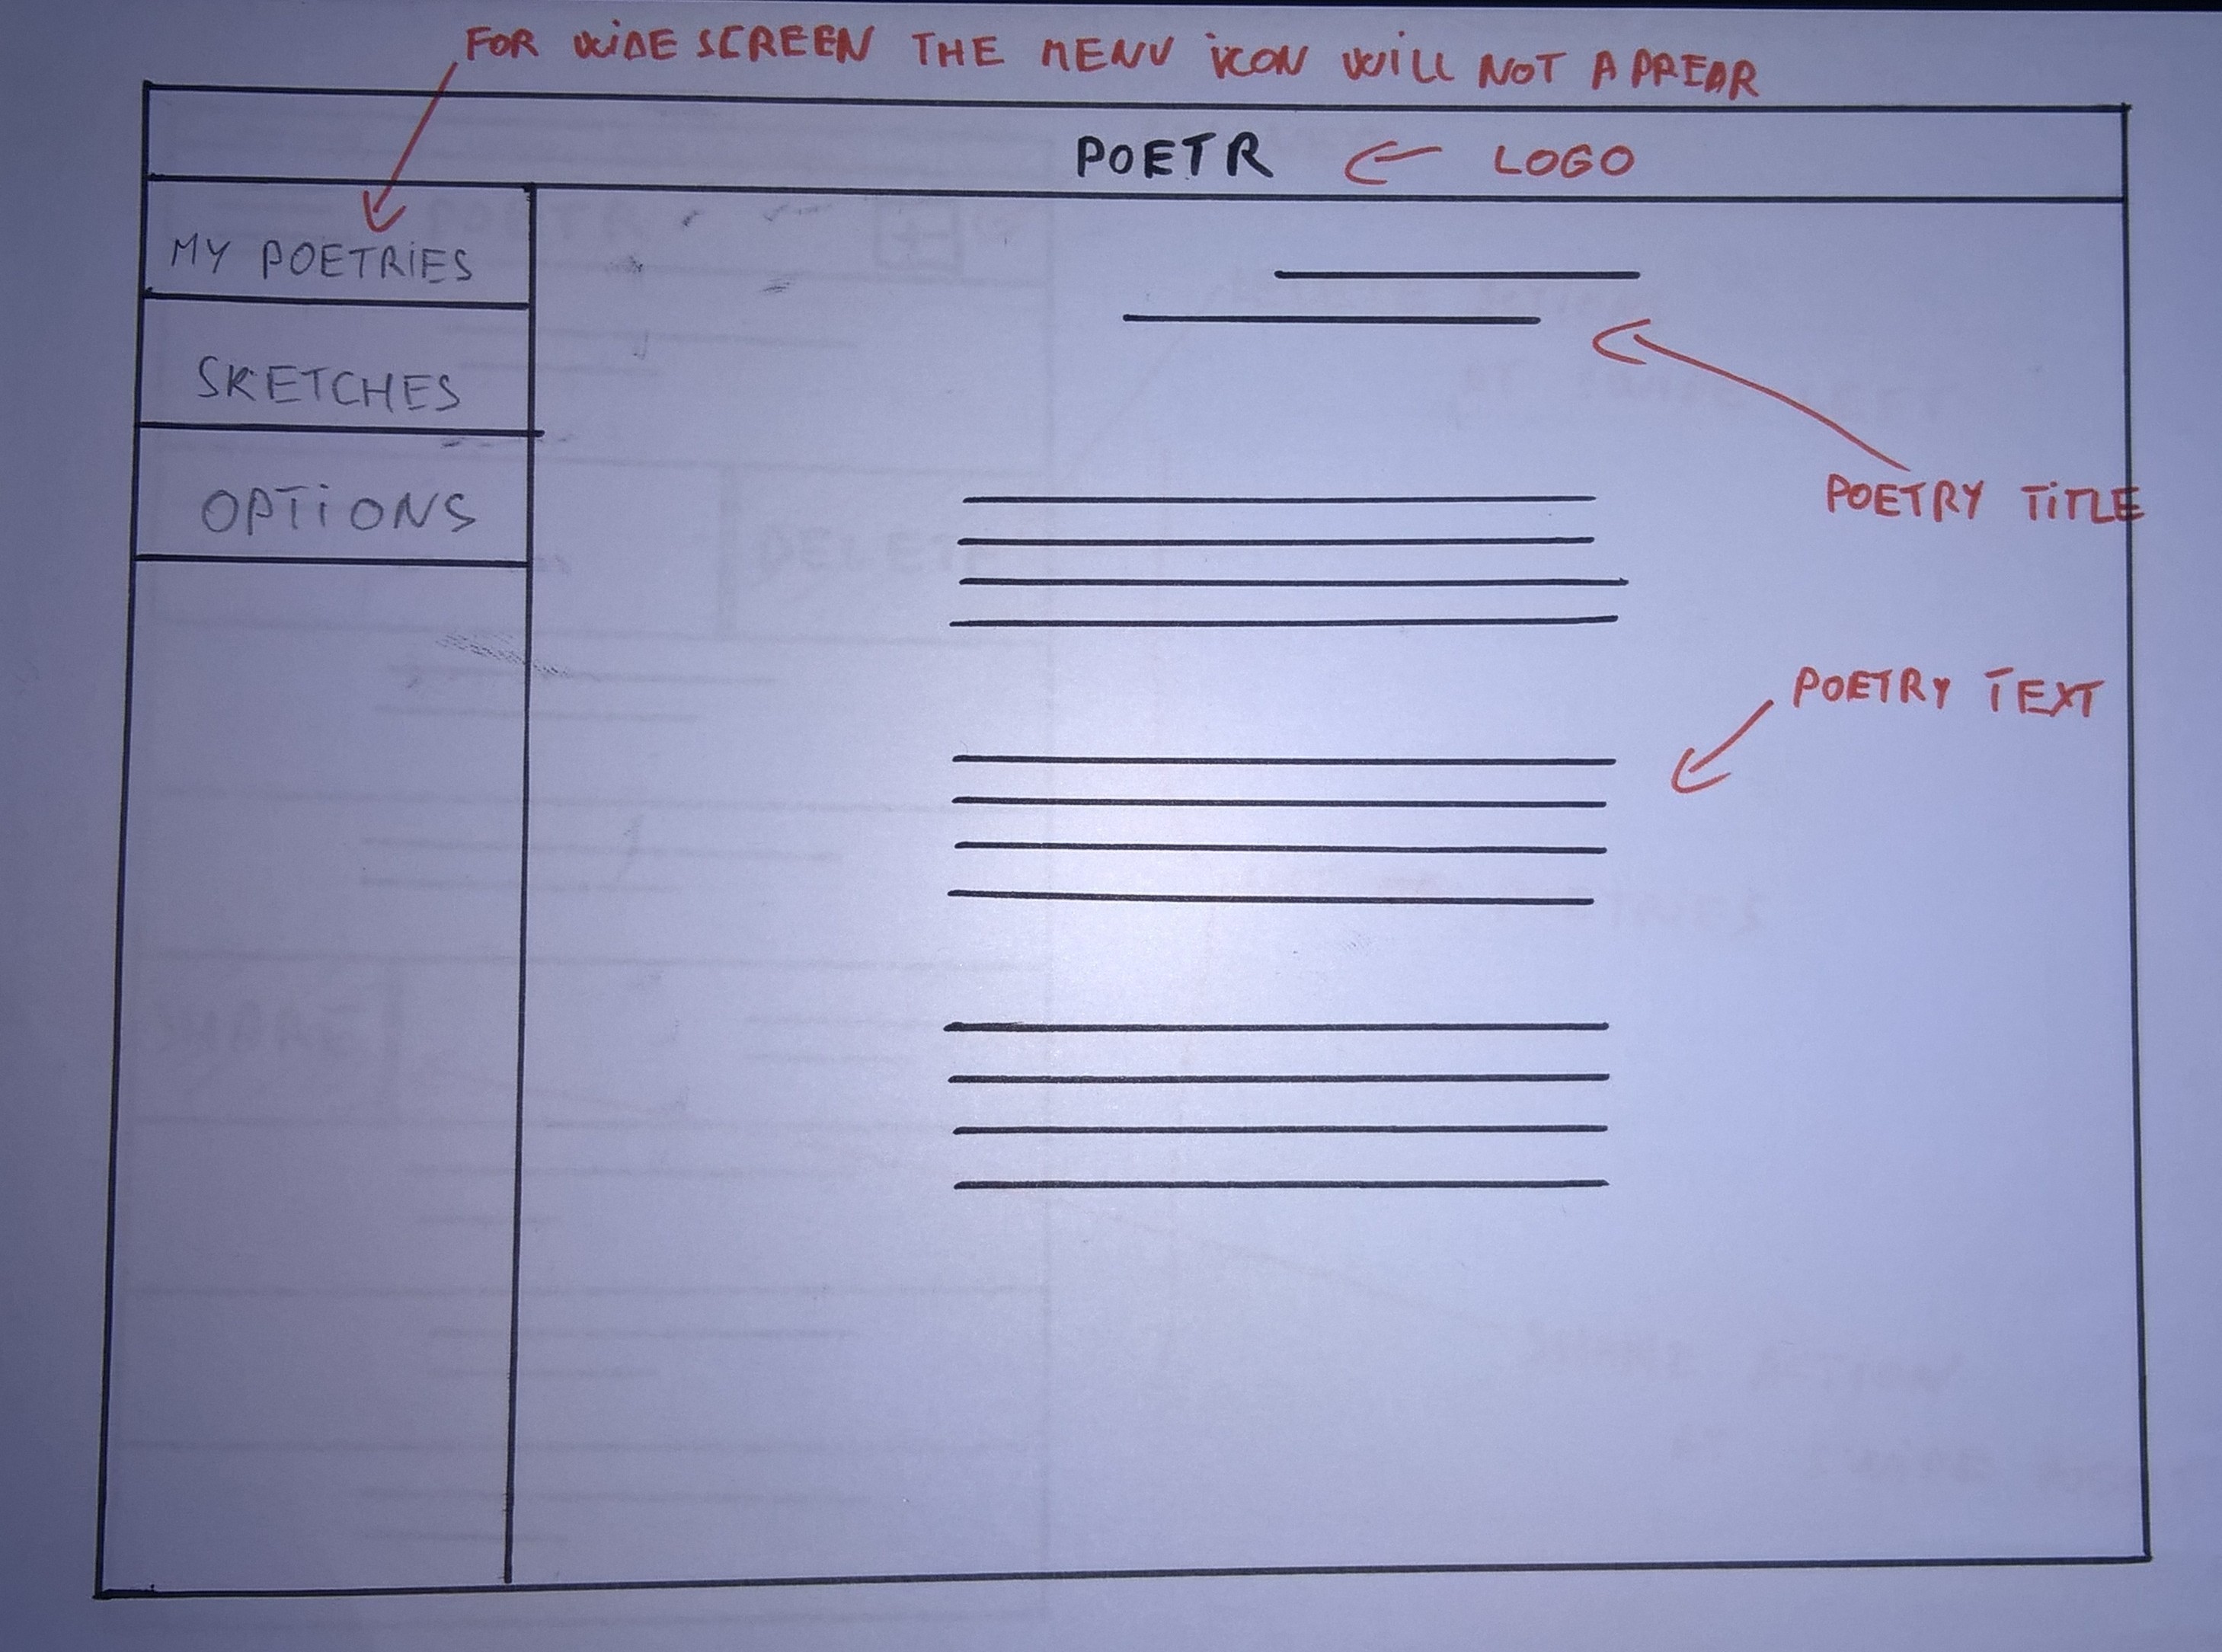 FOR WIDE SCREEN THE MENU ICON WILL NOT APPEAR
POETR LOGO
MY POETRIES
SKETCHES
OPTIONS
POETRY TITLE
POETRY TEXT
DELETE